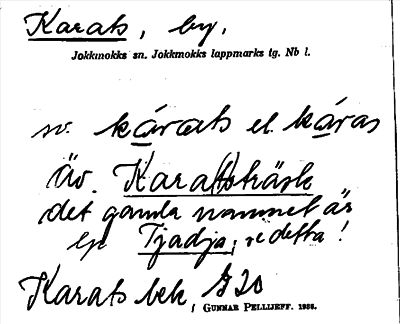 Karats, by.
Jokkmokks sn. Jokkmokks lappmarks tg. Nb l.
sv. kárats el. káras
äv. Kara(ts)träsk
det gamla namnet är
Tjadja, se detta!
Karats bek.
GUNNAR PELLIJEFF. 1956.